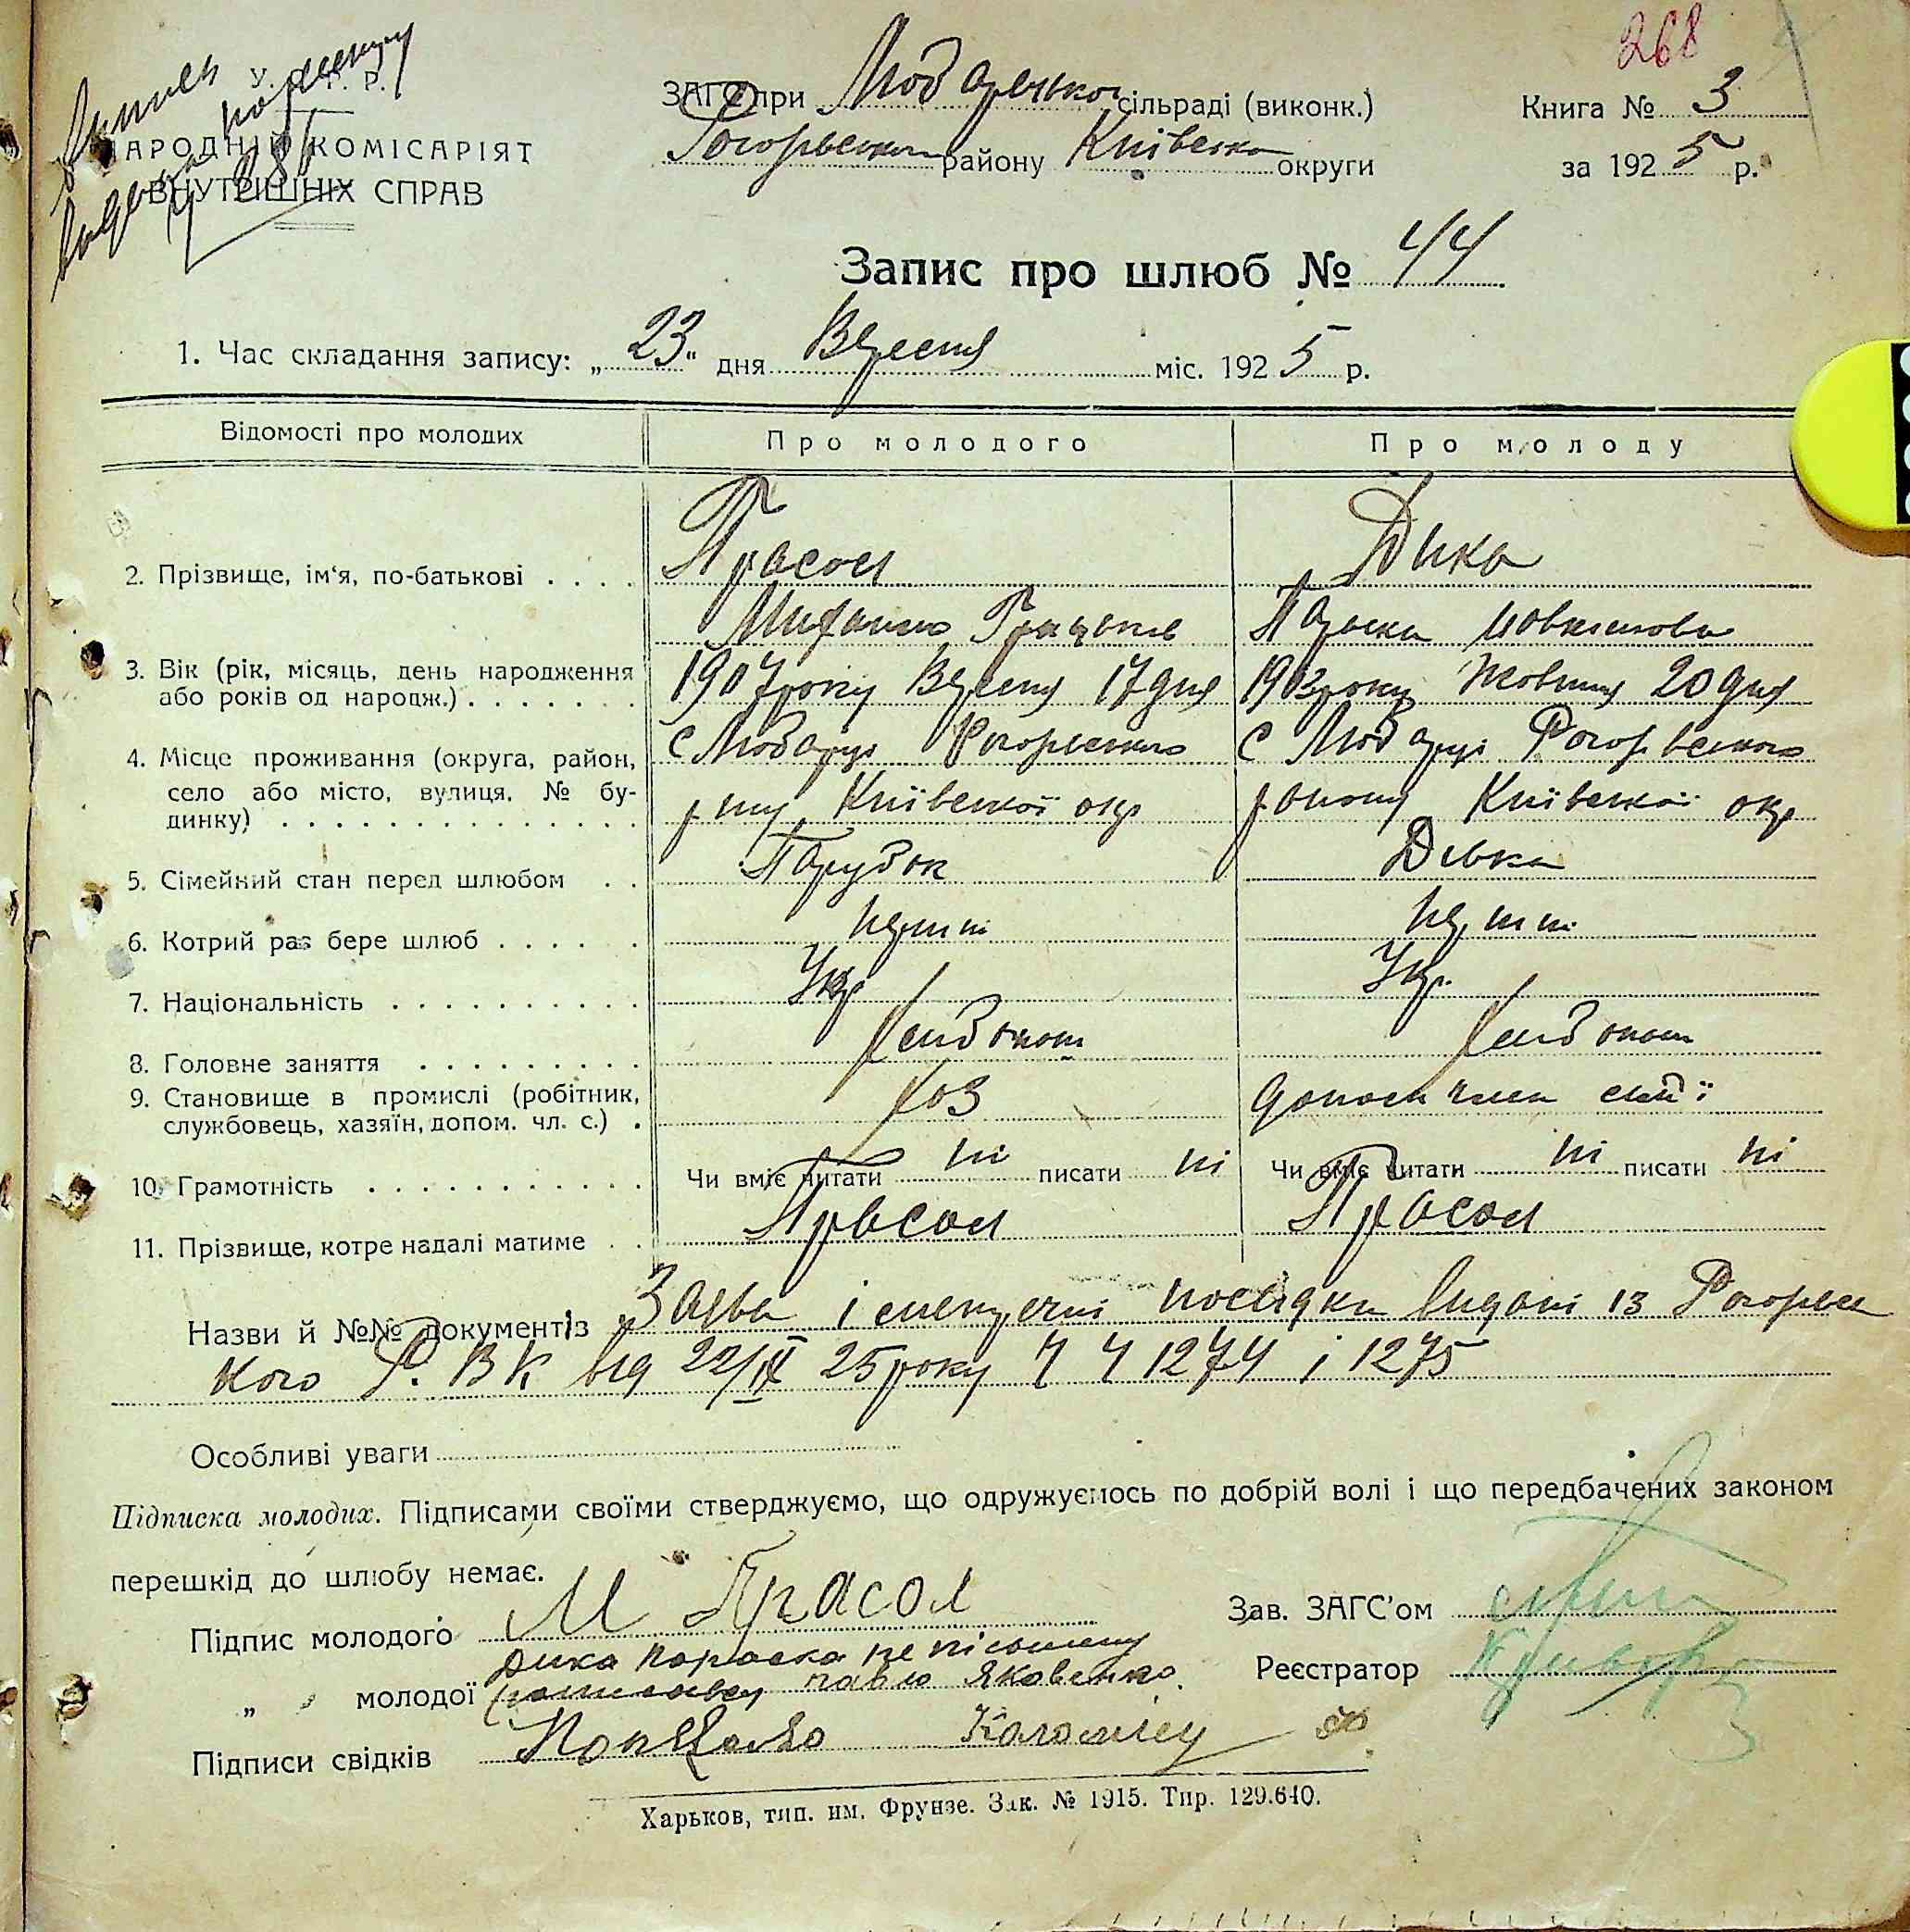 268
У. С. Р. Р.
НАРОДНІЙ КОМІСАРІЯТ
ВНУТРІШНІХ СПРАВ
ЗАГС при сільраді (виконк.)
району Київської округи
Книга № 3
за 1925 р.
Запис про шлюб № 44
1. Час складання запису: „23" дня Вересня міс. 1925 р.
Відомості про молодих
Про молодого
Про молоду
2. Прізвище, ім'я, по-батькові . . . .
Прасол
Дика
Параска
3. Вік (рік, місяць, день народження або років од народж.) . . . . . . .
1907 року Вересня 17 дня
1903 року Жовтня 20 дня
4. Місце проживання (округа, район, село або місто, вулиця, № будинку) . . . . . . . . . . . . . .
с
Київської окр
с
району Київської окр
5. Сімейний стан перед шлюбом . .
Парубок
Дівка
6. Котрий раз бере шлюб . . . . .
7. Національність . . . . . . . . . .
Укр.
Укр.
8. Головне заняття . . . . . . . . .
9. Становище в промислі (робітник, службовець, хазяїн, допом. чл. с.) .
хоз
10. Грамотність . . . . . . . . . . .
Чи вміє читати ні писати ні
Чи вміє читати ні писати ні
11. Прізвище, котре надалі матиме . .
Прасол
Прасол
Назви й №№ документів Заява і посвідки видані із
кого Р. В К від 22/IX 25 року 1274 і 1275
Особливі уваги
Підписка молодих. Підписами своїми стверджуємо, що одружуємось по добрій волі і що передбачених законом
перешкід до шлюбу немає.
Підпис молодого М Прасол
Зав. ЗАГС'ом
Дика Параска не пісьмену
„ молодої Павло Яковенко.
Реєстратор
Підписи свідків Коломієц
Харьков, тип. им. Фрунзе. Зак. № 1915. Тир. 129.640.